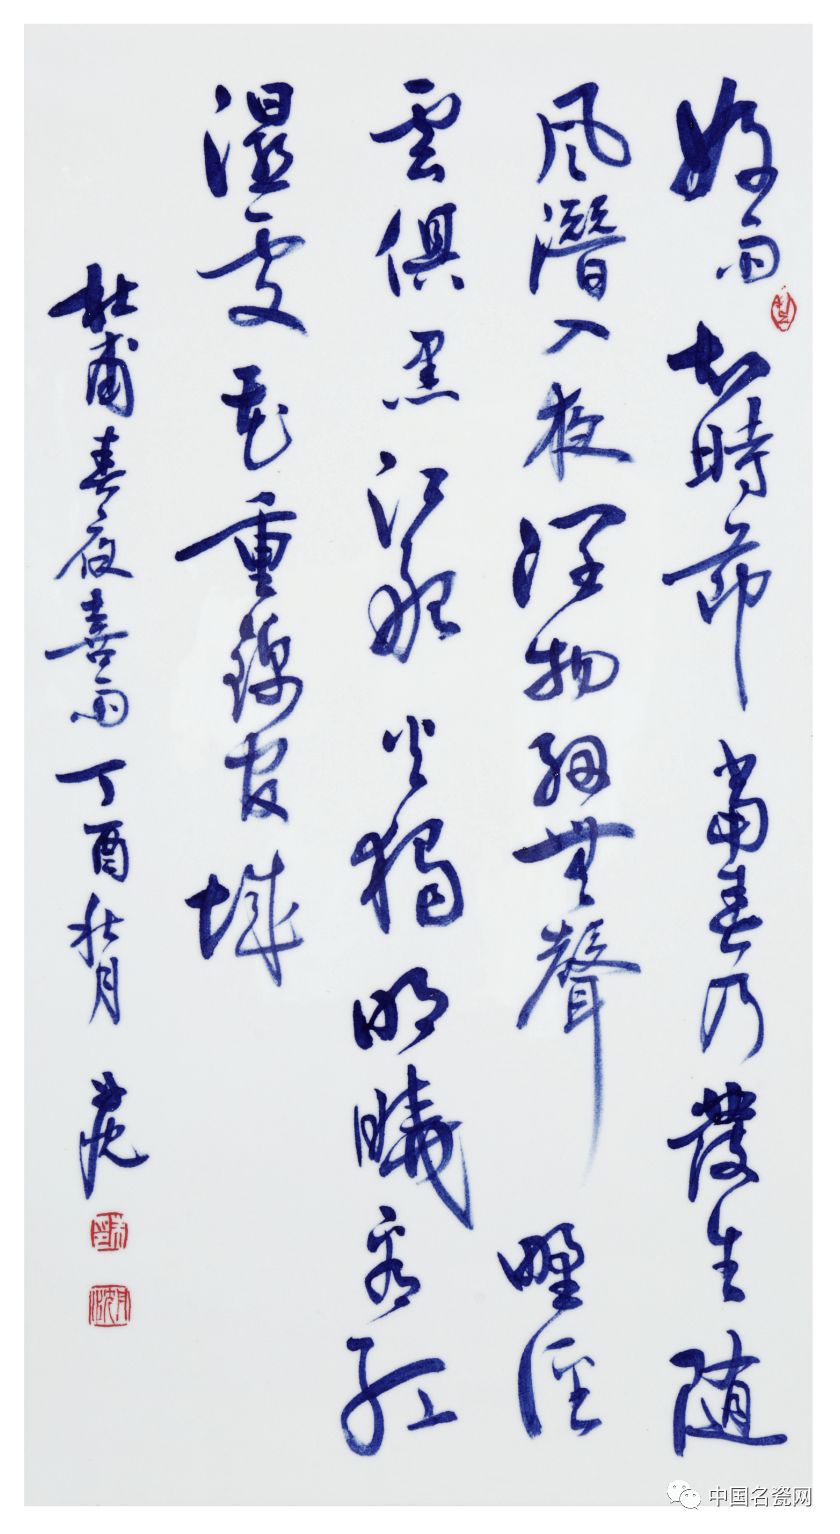 好雨知時節當春乃發生随
风潛入夜潤物細無聲野徑
雲俱黑江船火獨明曉看紅
濕處花重錦官城
杜甫春夜喜雨丁酉秋月
中国名瓷网